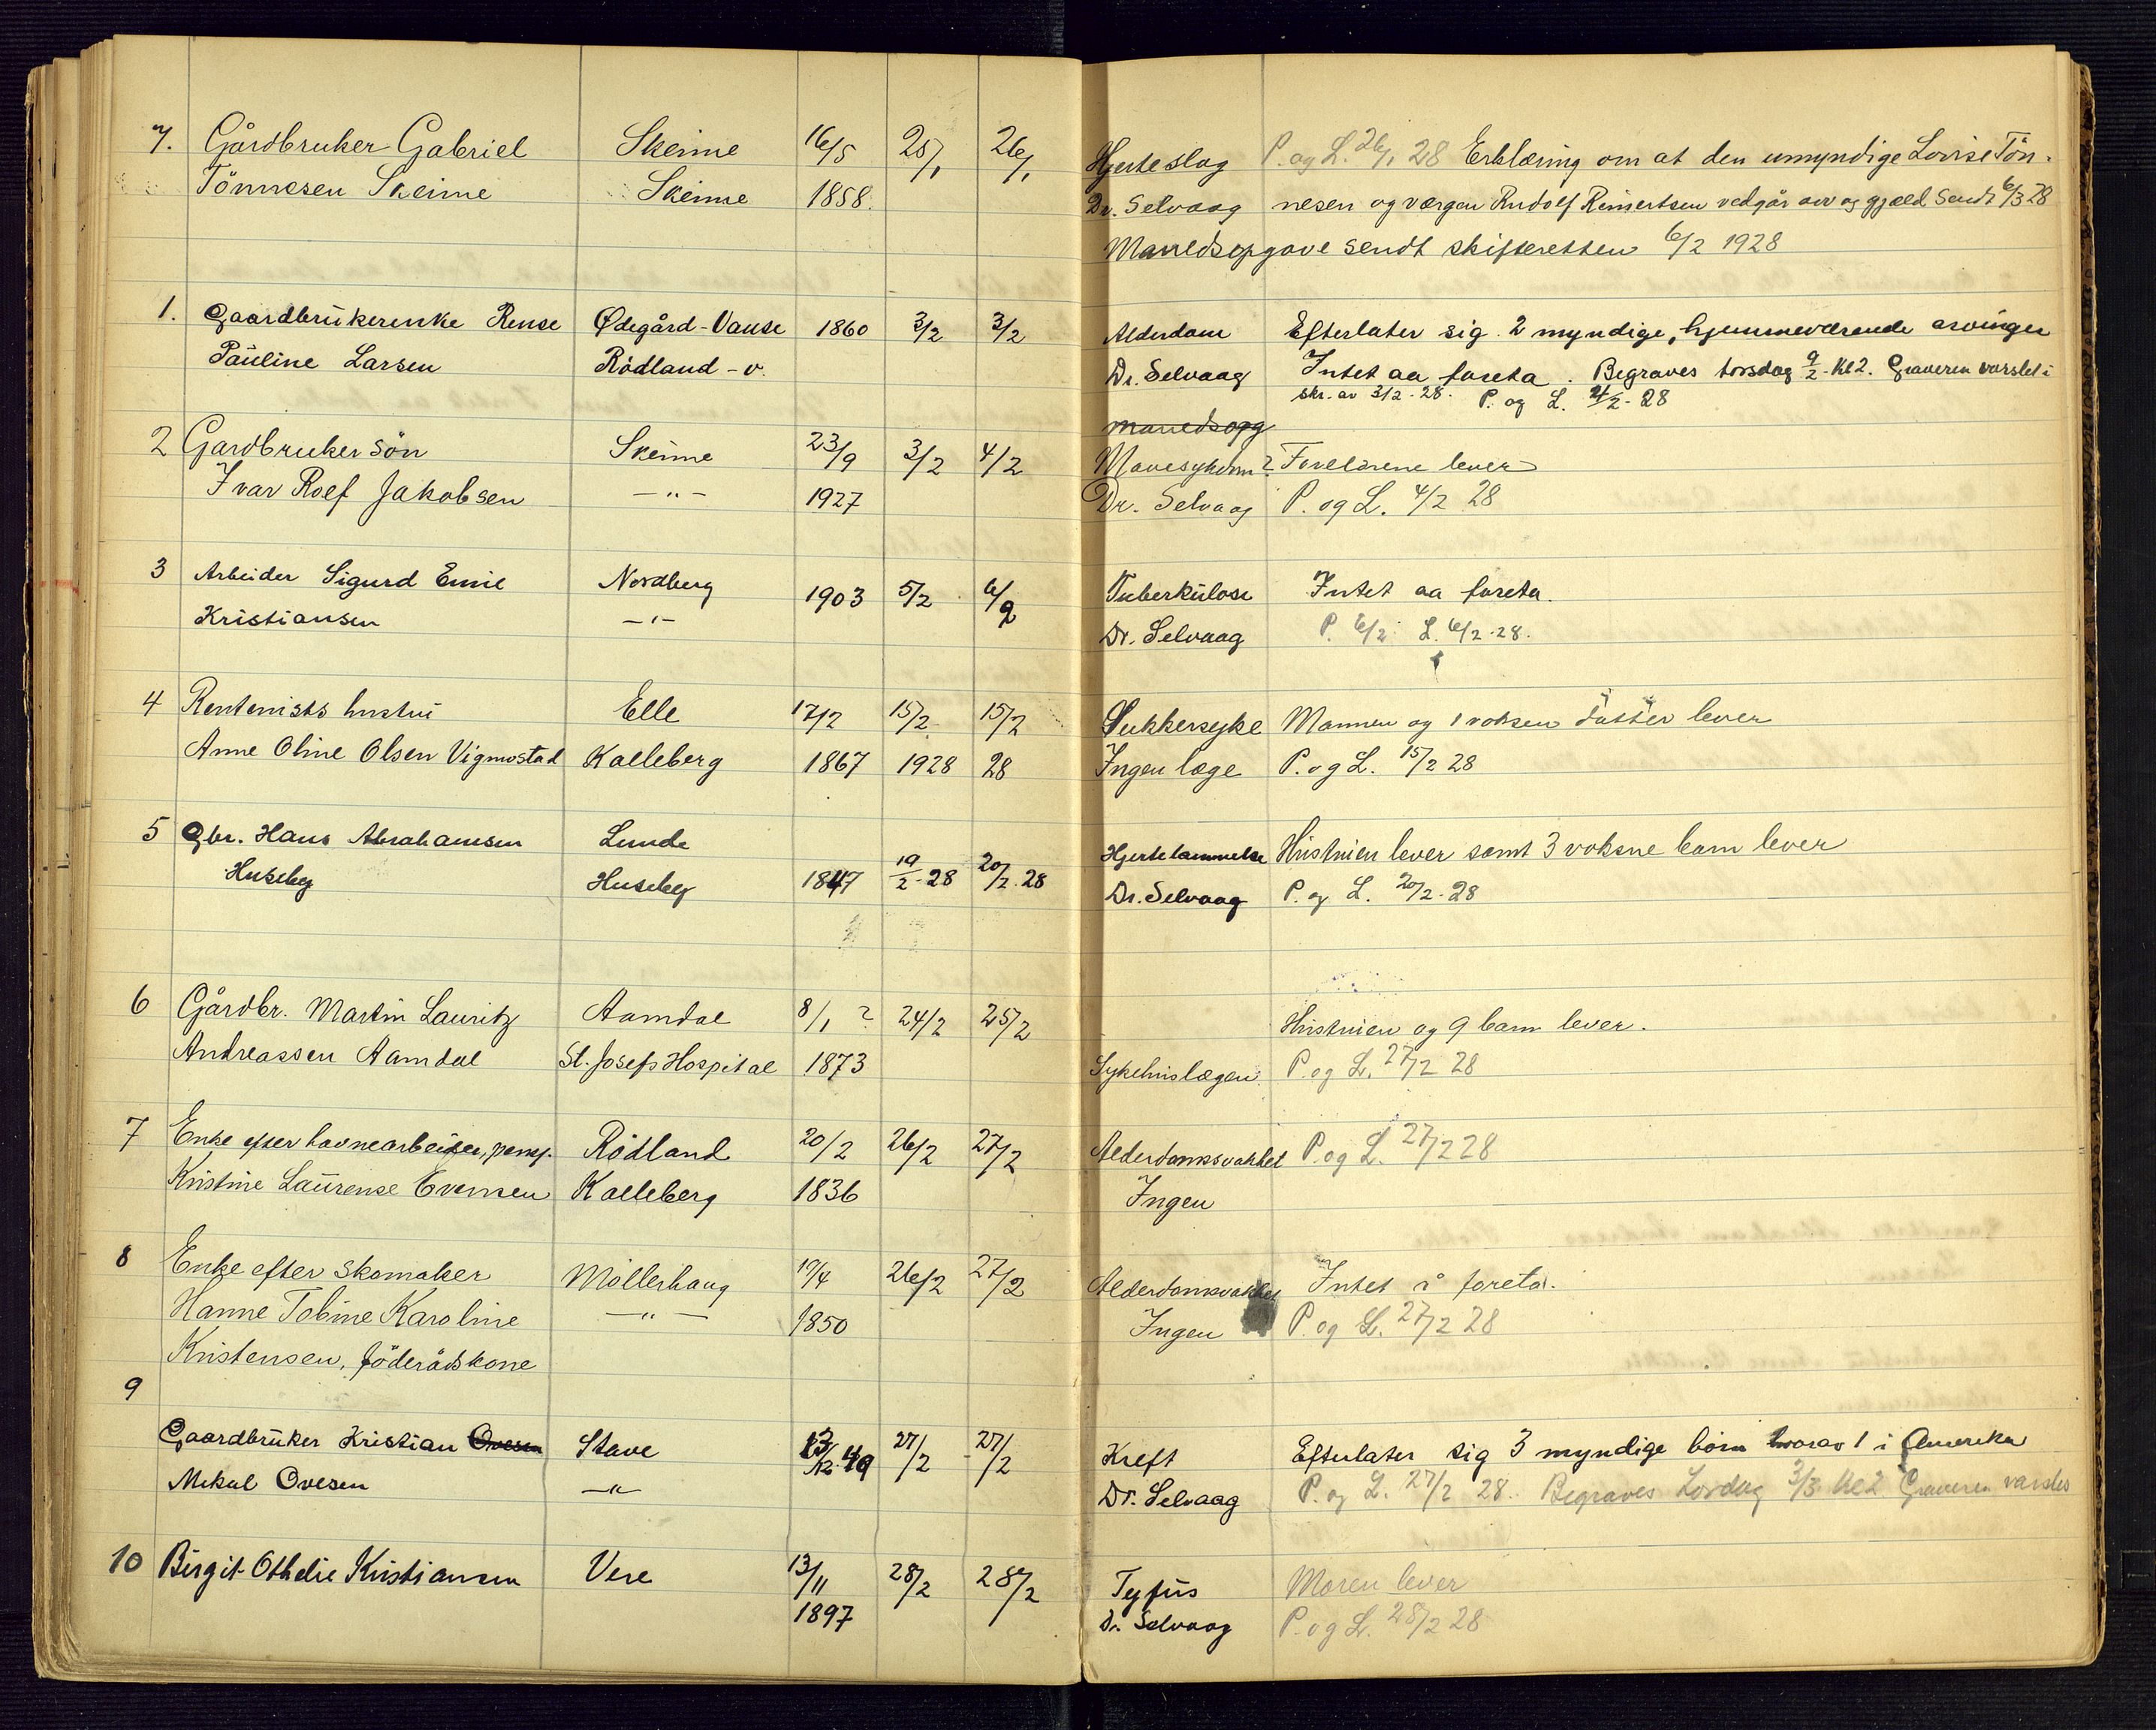 7. Gårdbruker Gabriel Skeime 16/5 25/1 26/1 Hjerteslag P. og L. 26/1 28 Erklæring om at den umyndige Lovise Tön-
Tönnesen Skeime Skeime 1858. Dr. Selvaag nesen og værgen Rudolf Reinertsen vedgår arv og gjæld Sendt 6/3 28
Manedsopgave sendt skifteretten 6/2 1928
1. Gaardbrukerenke Rense Ødegård-Vanse 1860 3/2 3/2 Alderdom Efterlater sig 2 myndige, hjemmeværende arvinger
Pauline Larsen Rödland - v. Dr. Selvaag Intet aa foreta. Begraves torsdag 9/2 - Kl 2. Graveren varslet i
skr. av 3/2 - 28. P. og L. 4/2 - 28
manedsopg
2 Gardbruker sön Skeime 23/9 3/2 4/2 Mavesykdom? Foreldrene lever
Ivar Roef Jakobsen —"— 1927 Dr. Selvaag P. og L. 4/2 28
3 Arbeider Sigurd Emil Nordberg 1903 5/2 6/2 Tuberkulose Intet aa foreta.
Kristiansen —"— Dr. Selvaag P. 6/2 L. 6/2 - 28.
4 Rentenists hustru Elle 17/2 15/2 15/2 Sukkersyke Mannen og 1 voksen datter lever
Anne Oline Olsen Vigmostad Kalleberg 1867 1928 28 Ingen læge P. og L. 15/2 28
5 Gbr. Hans Abrahamsen Lunde Hjertelammelse Hustruen lever samt 3 voksne barn lever
Huseby Huseby 1847 19/2 - 28 20/2 - 28 Dr. Selvaag P. og L. 20/2 - 28
6 Gårdbr. Martin Lauritz Aamdal 8/1 ? 24/2 25/2 Hustruen og 9 barn lever.
Andreassen Aamdal St. Josefs Hospital 1873 Sykehuslægen P. og L. 27/2 28
7 Enke efter havnearbeider, pensj. Rödland 20/2 26/2 27/2 Alderdomsvakhet P. og L. 27/2 28
Kristine Laurense Evensen Kalleberg 1836 Ingen
8 Enke efter skomaker Möllerhaug 19/4 26/2 27/2 Alderdomsvakhet Intet å foreta.
Hanne Tobine Karoline —"— 1850 Ingen P. og L. 27/2 28
Kristensen, föderådskone
9
Gaardbruker Kristian Ovesen Stave 49 27/2 27/2 Kreft Efterlater sig 3 myndige börn hvorav 1 i Amerika
Mikal Ovesen —"— Dr. Selvaag P. og L. 27/2 28. Begraves Lördag 3/3 Kl 2 Graveren varsles
10 Birgit Othelie Kristiansen Vere 13/11 28/2 28/2 Tyfus Moren lever
1897 Dr. Selvaag P. og L. 28/2 28